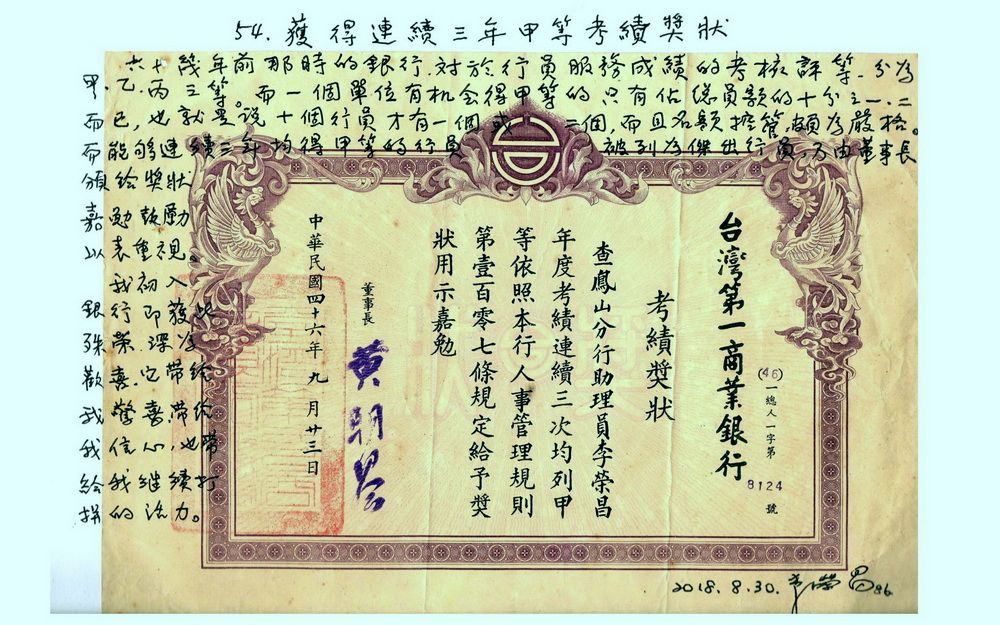 54. 獲得連續三年甲等考績獎狀
六十幾年前那時的銀行.對於行員服務成績的考核評等.分為
甲.乙.丙三等。而一個單位有机会得甲等的只有佔總員額的十分之一.二
而已,也就是說十個行員才有一個或二個,而且名額控管,頗為嚴格。
而能够連續三年均得甲等的行員 被列為傑出行員,方由董事長
頒給獎狀
嘉勉鼓勵
以表重視。
我初入
銀行即獲此
殊榮.深為
歡喜.它帶給
我榮喜帶給
我信心,也帶
給我継續打
拚的活力。
台灣第一商業銀行
(46)一總人一字第8124號
考績獎狀
查鳳山分行助理員李榮昌
年度考績連續三次均列甲
等依照本行人事管理規則
第壹百零七條規定給予獎
狀用示嘉勉
董事長
黃朝琴
中華民國四十六年九月廿三日
2018.8.30. 李榮昌 86